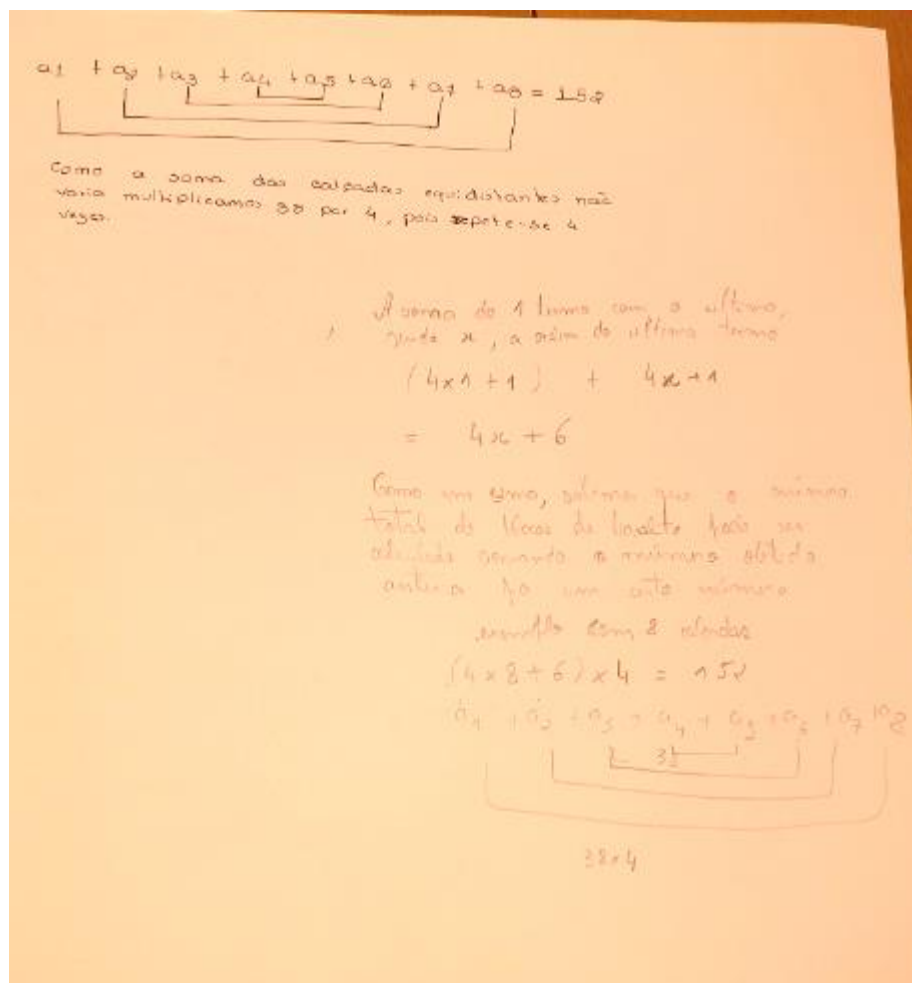 a1 + a2 + a3 + a4 + a5 + a6 + a7 + a8 = 152
Como a soma das calçadas equidistantes não
varia multiplicamos 38 por 4, pois repete-se 4
vezes.
A soma do 1 termo com o ultimo,
sendo x, a ordem do ultimo termo
(4x1 + 1) + 4x+1
= 4x + 6
Como um, que o número
total de blocos de pode ser
o número obtido
por um certo número
exemplo com 8 calçadas
(4 x 8 + 6) x 4 = 152
a1 + a2 + a3 + a4 + a5 + a6 + a7 + a8
38
38x4